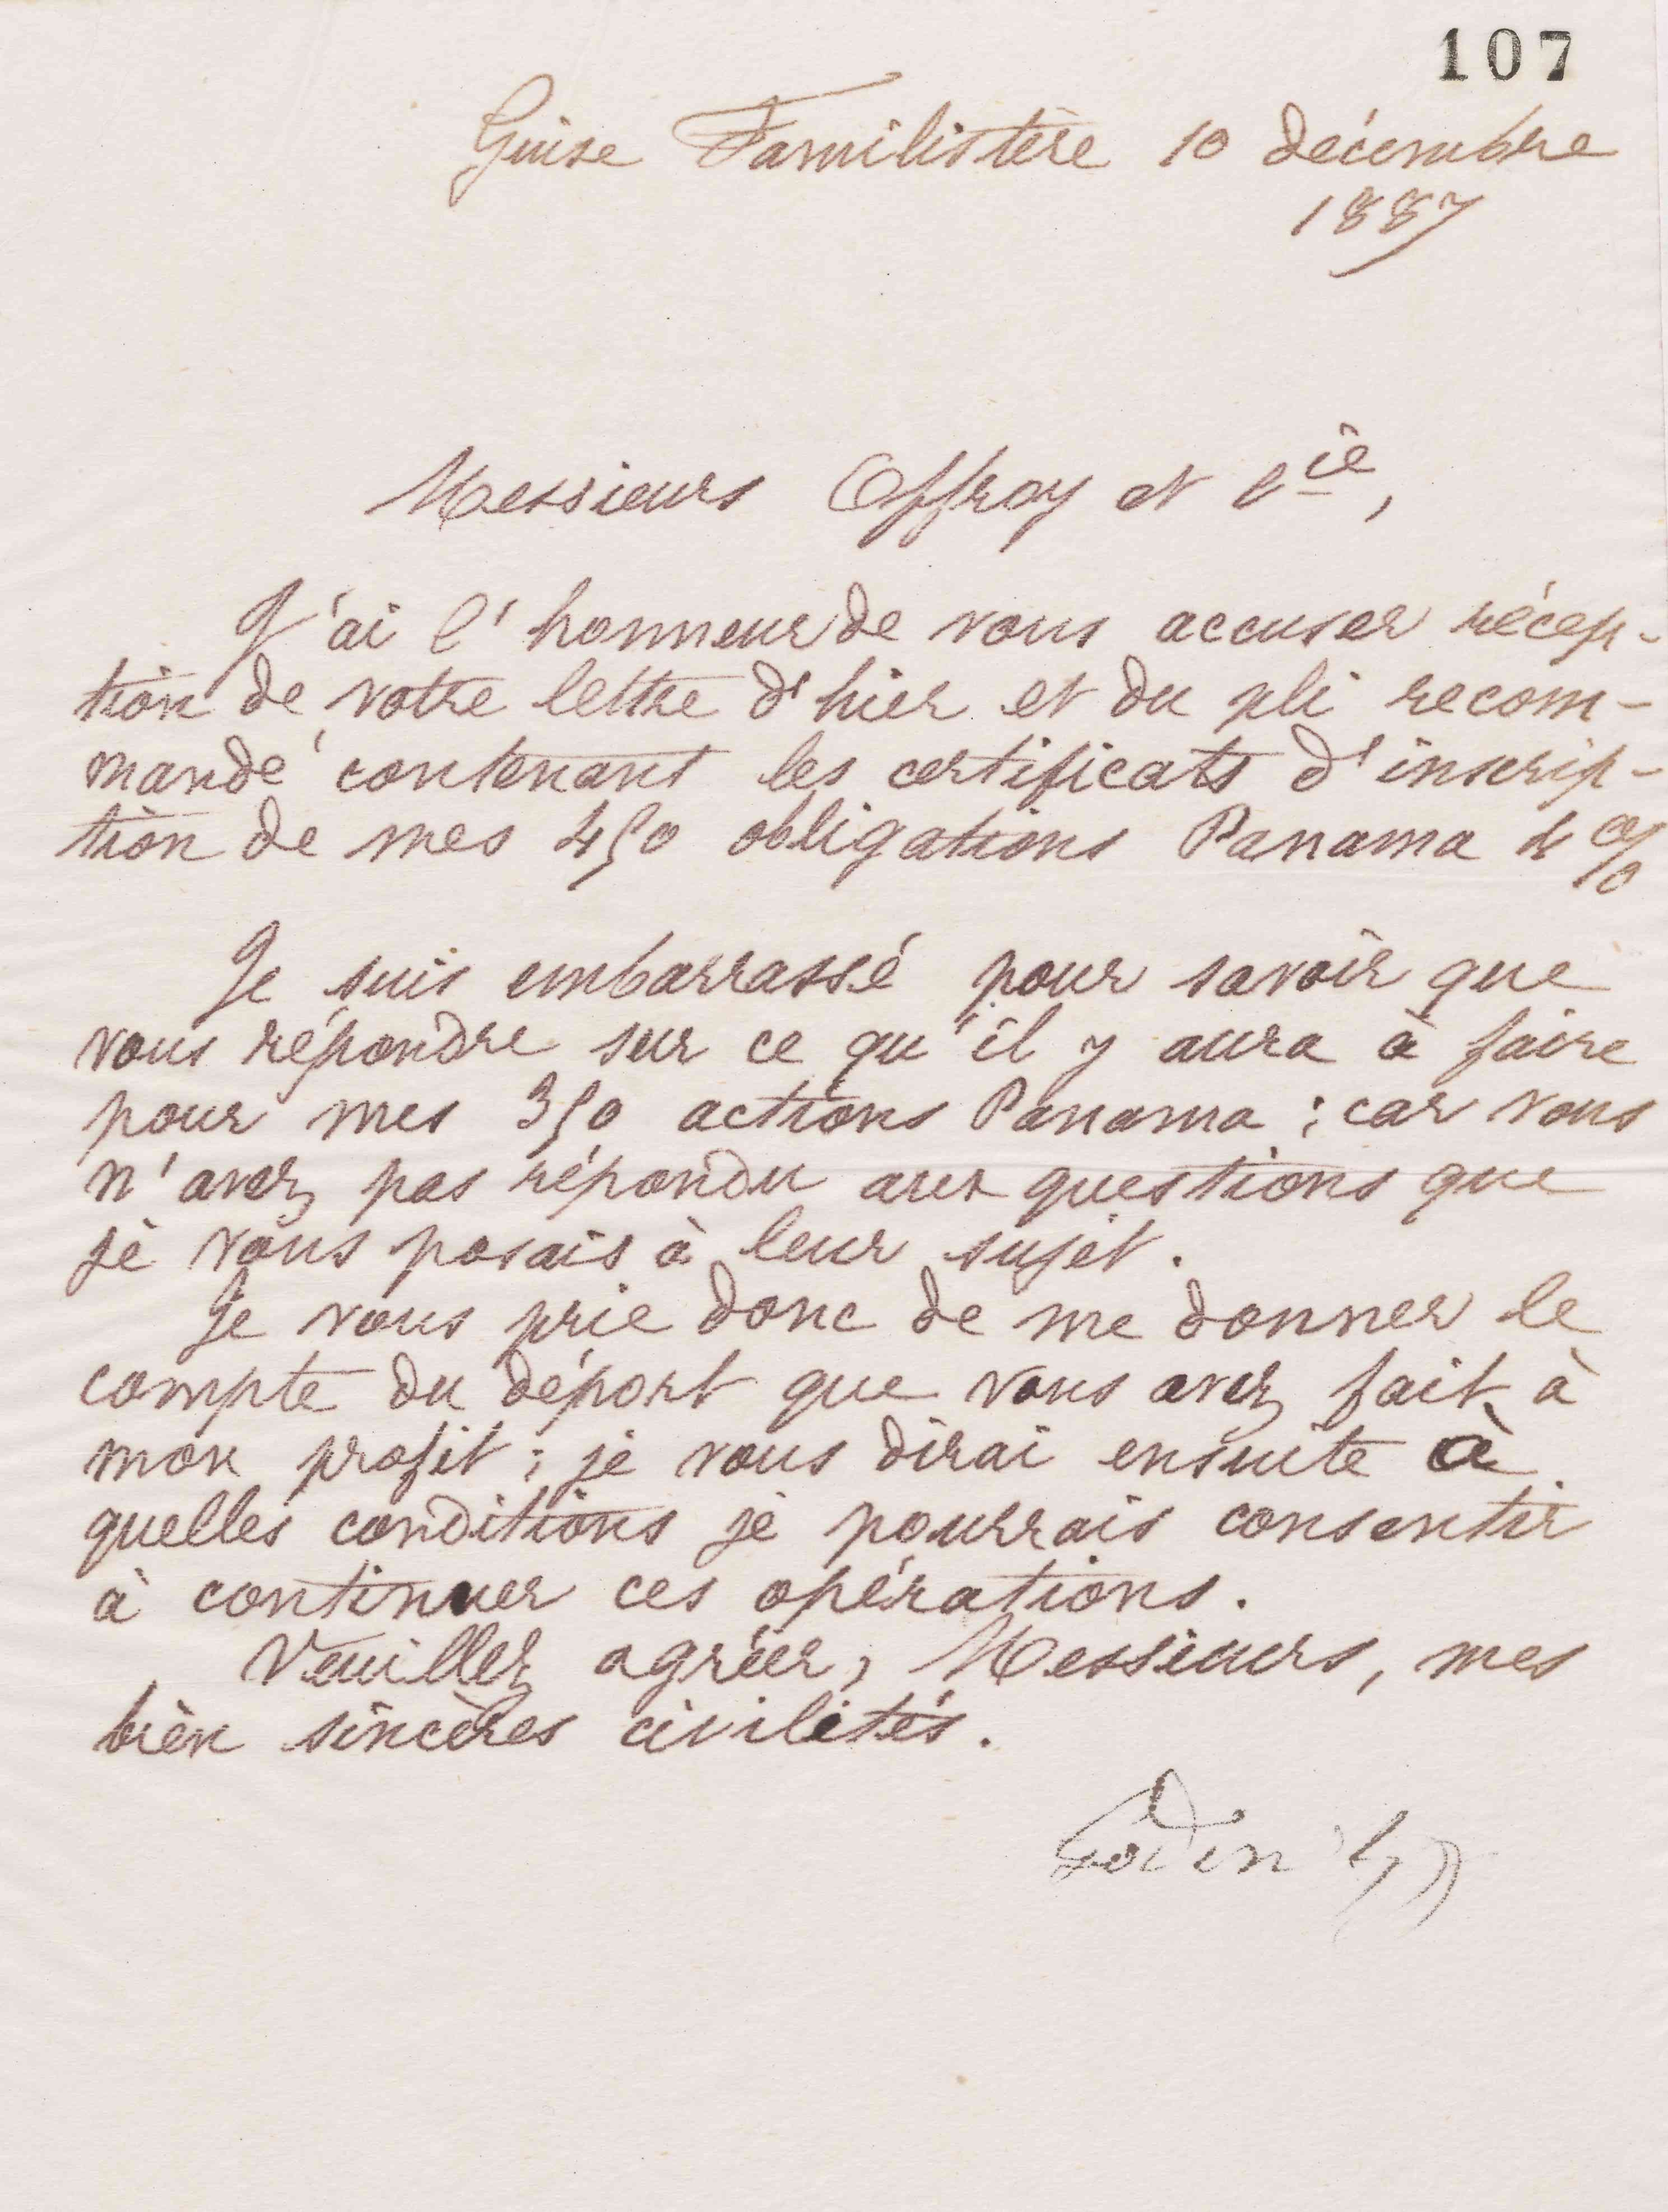 107
Guise Familistère 10 décembre
1887
Messieurs Offroy et Cie,
J'ai l'honneur de vous accuser récep-
tion de votre lettre d'hier et du pli recom-
mandé contenant les certificats d'inscrip-
tion de mes 450 obligations Panama 4 %
Je suis embarrassé pour savoir que
vous répondre sur ce qu'il y aura à faire
pour mes 350 actions Panama ; car vous
n'avez pas répondu aux questions que
je vous posais à leur sujet.
Je vous prie donc de me donner le
compte du déport que vous avez fait à
mon profit ; je vous dirai ensuite à
quelles conditions je pourrais consentir
à continuer ces opérations.
Veuillez agréer, Messieurs, mes
bien sincères civilités.
Godin